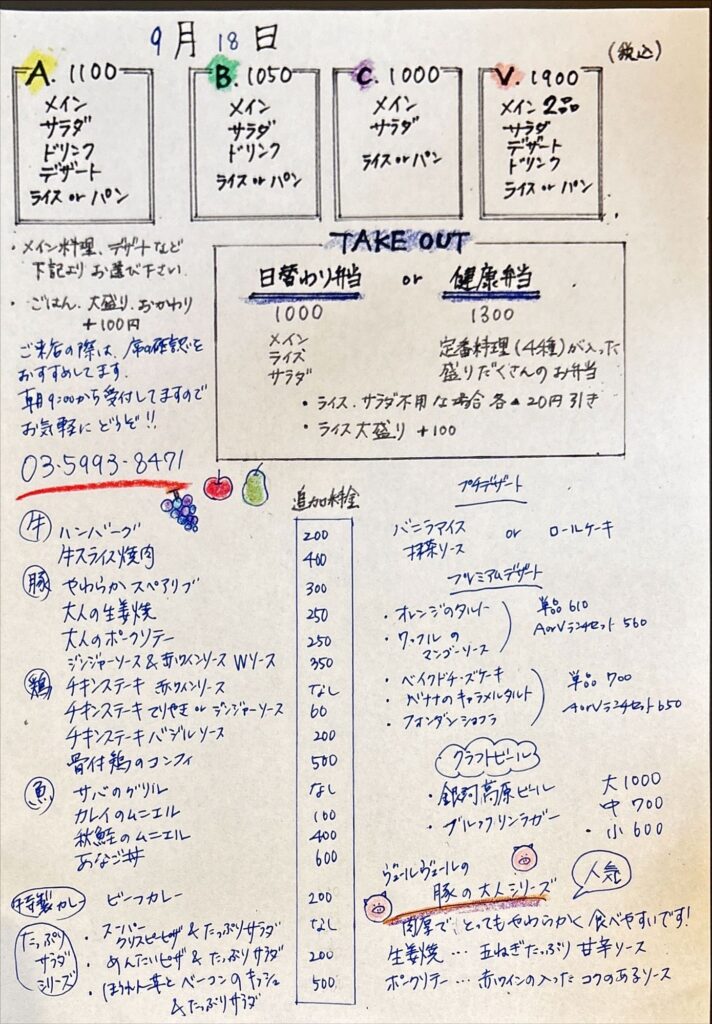 9月18日
(税込)
A. 1100
メイン
サラダ
ドリンク
デザート
ライス or パン
B. 1050
メイン
サラダ
ドリンク
ライス or パン
C. 1000
メイン
サラダ
ライス or パン
V. 1900
メイン 2品
サラダ
デザート
ドリンク
ライス or パン
・メイン料理、デザートなど
下記よりお選び下さい
・ごはん、大盛り、おかわり
+100円
ご来店の際は、席の確認を
おすすめしてます。
朝9:00から受付してますので
お気軽にどうぞ!!
03-5993-8471
TAKE OUT
日替わり弁当 or 健康弁当
1000
メイン
ライス
サラダ
1300
定番料理(4種)が入った
盛りだくさんのお弁当
・ライス、サラダ不用な場合 各▲20円引き
・ライス大盛り +100
追加料金
牛 ハンバーグ 200
牛スライス焼肉 400
豚 やわらかスペアリブ 300
大人の生姜焼 250
大人のポークソテー 250
ジンジャーソース&赤ワインソース Wソース 350
鶏 チキンステーキ 赤ワインソース なし
チキンステーキ てりやき or ジンジャーソース 60
チキンステーキ バジルソース 200
骨付鶏のコンフィ 500
魚 サバのグリル なし
カレイのムニエル 100
秋鮭のムニエル 400
あなご丼 600
特製カレー ビーフカレー 200
たっぷり
サラダ
シリーズ
・スーパー
クリスピーピザ & たっぷりサラダ なし
・めんたいピザ & たっぷりサラダ 200
・ほうれん草とベーコンのキッシュ 500
& たっぷりサラダ
プチデザート
バニラアイス
抹茶ソース
or ロールケーキ
プレミアムデザート
・オレンジのタルト
・ワッフルの
マンゴーソース
単品 610
AorVランチセット 560
・ベイクドチーズケーキ
・バナナのキャラメルタルト
・フォンダンショコラ
単品 700
AorVランチセット 650
クラフトビール
・銀河高原ビール
・ブルックリンラガー
大 1000
中 700
・小 600
ヴェールヴェールの
豚の大人シリーズ
人気
肉厚で、とってもやわらかく食べやすいです!
生姜焼 … 玉ねぎたっぷり 甘辛ソース
ポークソテー … 赤ワインの入った コクのあるソース